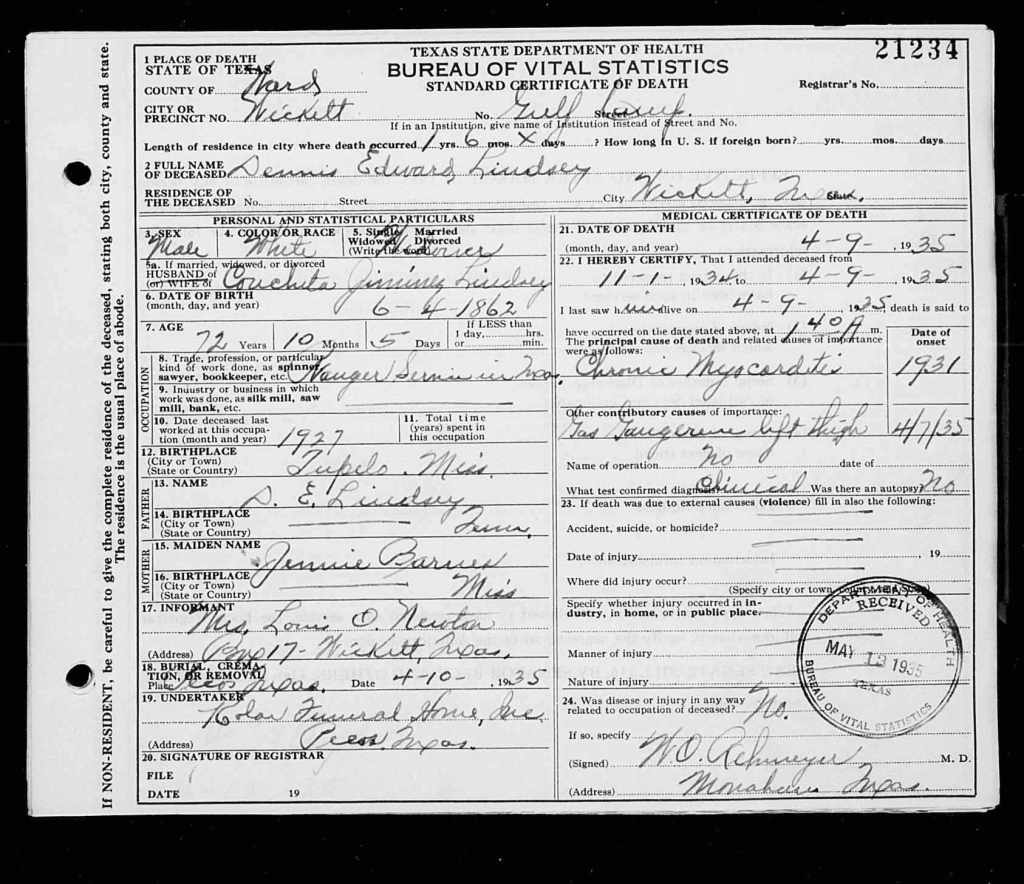 21234
TEXAS STATE DEPARTMENT OF HEALTH
BUREAU OF VITAL STATISTICS
STANDARD CERTIFICATE OF DEATH
1 PLACE OF DEATH
STATE OF TEXAS
COUNTY OF Ward
Registrar's No.
CITY OR
PRECINCT NO. Wickett No. Gulf Street Camp.
If in an Institution, give name of Institution instead of Street and No.
Length of residence in city where death occurred 1 yrs. 6 mos. X days ? How long in U. S. if foreign born? yrs. mos. days
2 FULL NAME
OF DECEASED Dennis Edward Lindsey
RESIDENCE OF
THE DECEASED No. Street City Wickett, State
PERSONAL AND STATISTICAL PARTICULARS
3. SEX Male
4. COLOR OR RACE White
5. Single Married
Widowed Divorced
(Write the word) Widower
5a. If married, widowed, or divorced
HUSBAND of
(or) WIFE of Conchita Jiminez Lindsey
6. DATE OF BIRTH
(month, day, and year) 6-4-1862
7. AGE
72 Years 10 Months 5 Days
If LESS than
1 day, hrs.
or min.
OCCUPATION
8. Trade, profession, or particular
kind of work done, as spinner,
sawyer, bookkeeper, etc. Ranger Service in Texas.
9. Industry or business in which
work was done, as silk mill, saw
mill, bank, etc.
10. Date deceased last
worked at this occupa-
tion (month and year) 1927
11. Total time
(years) spent in
this occupation
12. BIRTHPLACE
(City or Town)
(State or Country) Tupelo. Miss.
FATHER
13. NAME D. E. Lindsey
14. BIRTHPLACE
(City or Town)
(State or Country) Tenn.
MOTHER
15. MAIDEN NAME Jennie Barnes
16. BIRTHPLACE
(City or Town)
(State or Country) Miss
17. INFORMANT
Mrs. Louis O. Newton
(Address) Box 17 - Wickett, Texas.
18. BURIAL, CREMA-
TION, OR REMOVAL
Place Pecos Texas. Date 4-10-, 1935
19. UNDERTAKER
Funeral Home, Inc.
(Address) Pecos. Texas.
20. SIGNATURE OF REGISTRAR
FILE
DATE 19
MEDICAL CERTIFICATE OF DEATH
21. DATE OF DEATH
(month, day, and year) 4-9-, 1935
22. I HEREBY CERTIFY, That I attended deceased from
11-1-, 1934, to 4-9-, 1935
I last saw him alive on 4-9-, 1935, death is said to
have occurred on the date stated above, at 1 40 A m.
The principal cause of death and related causes of importance
were as follows:
Date of
onset
Chronic Myocarditis 1931
Other contributory causes of importance:
Gas Gangerene left thigh 4/7/35
Name of operation No date of
What test confirmed diagnosis Clinical Was there an autopsy? No
23. If death was due to external causes (violence) fill in also the following:
Accident, suicide, or homicide?
Date of injury , 19
Where did injury occur?
(Specify city or town
Specify whether injury occurred in in-
dustry, in home, or in public place.
Manner of injury
Nature of injury
24. Was disease or injury in any way
related to occupation of deceased? No.
If so, specify
(Signed) M. D.
(Address) Monahans Texas.
DEPARTMENT OF HEALTH
RECEIVED
MAY 13 1935
TEXAS
BUREAU OF VITAL STATISTICS
If NON-RESIDENT, be careful to give the complete residence of the deceased, stating both city, county and state.
The residence is the usual place of abode.